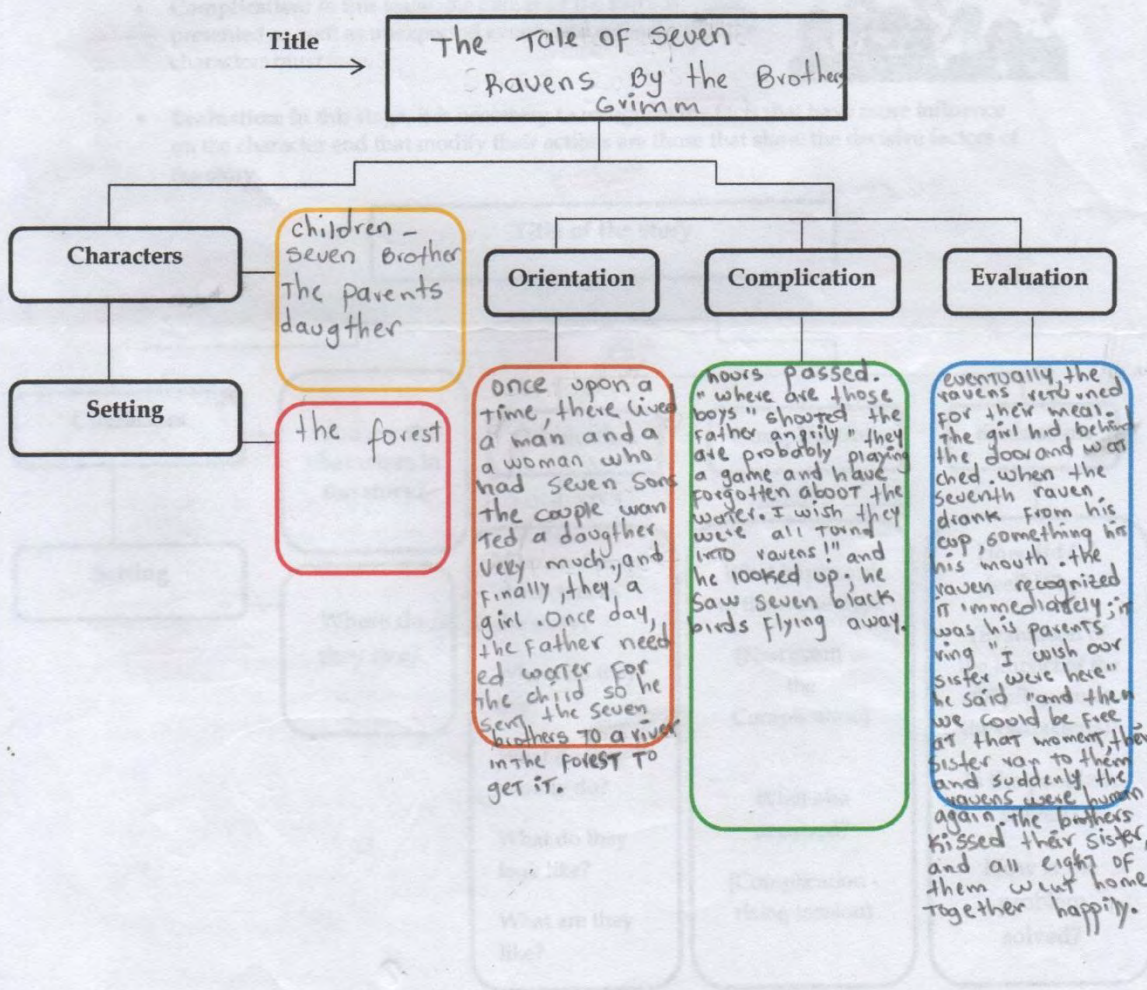 Title
The Tale of Seven
Ravens By the Brothers
Grimm
Characters
children -
seven Brother
The parents
daugther
Setting
the forest
Orientation
once upon a
Time, there lived
a man and a
a woman who
had seven sons
The couple wan
Ted a daugther
very much, and
Finally, they, a
girl. Once day,
the Father need
ed warter For
The child so he
sent the seven
brothers To a river
in the forest To
get iT.
Complication
hours passed.
"where are those
boys" shouted the
Father angrily "they
are probably playing
a game and have
forgotten aboot the
water. I wish they
were all Tornd
into ravens!" and
he looked up, he
saw seven black
birds flying away.
Evaluation
eventually, the
ravens returned
for their meal.
The girl hid behind
the door and wat
ched. when the
seventh raven
drank from his
cup, something his
his mouth. the
raven recognized
iT immediately; it
was his parents
ring "I wish our
sister were here"
he said "and then
we could be free
at that moment, their
sister ran to them
and suddenly the
ravens were human
again. The brothers
kissed their sister,
and all eight of
them went home
Together happily.